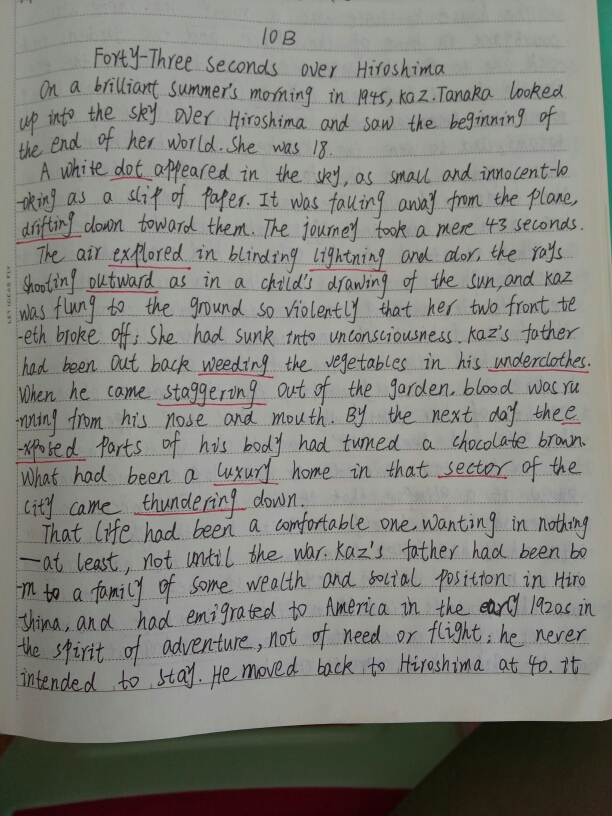 10B
Forty-Three seconds over Hiroshima
On a brilliant summer's morning in 1945, Kaz. Tanaka looked
up into the sky over Hiroshima and saw the beginning of
the end of her world. She was 18.
A white dot appeared in the sky, as small and innocent-lo
-oking as a slip of paper. It was falling away from the plane,
drifting down toward them. The journey took a mere 43 seconds.
The air explored in blinding lightning and dlor, the rays
shooting outward as in a child's drawing of the sun, and Kaz
was flung to the ground so violently that her two front te
-eth broke off; She had sunk into unconsciousness. Kaz's father
had been out back weeding the vegetables in his underclothes.
When he came staggering out of the garden, blood was ru
-nning from his nose and mouth. By the next day the e
-xposed parts of his body had turned a chocolate brown.
What had been a luxury home in that sector of the
city came thundering down.
That life had been a comfortable one, wanting in nothing
—at least, not until the war. Kaz's father had been bo
-rn to a family of some wealth and social position in Hiro
-shima, and had emigrated to America in the early 1920s in
the spirit of adventure, not of need or flight; he never
intended to stay. He moved back to Hiroshima at 40. It